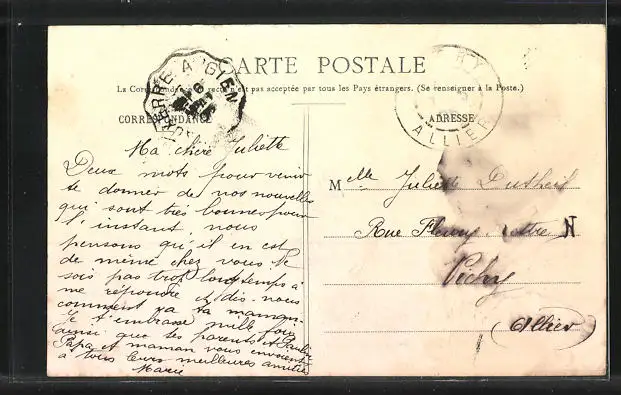 CARTE POSTALE
La Correspondance au recto n'est pas acceptée par tous les Pays étrangers. (Se renseigner à la Poste.)
CORRESPONDANCE
ADRESSE
ALLIER
Ma chère Juliette
Deux mots pour venir
te donner de nos nouvelles
qui sont très bonnes pour
l'instant, nous
pensons qu'il en est
de même chez vous. Ne
sois pas trop longtemps à
me répondre et dis-nous
comment va ta maman.
Je t'embrasse mille fois
ainsi que tes parents et
Papa et maman vous envoient
à tous leurs meilleures amitiés
Marie
Melle Juliette Dutheil
Rue Fleury
Vichy
Allier